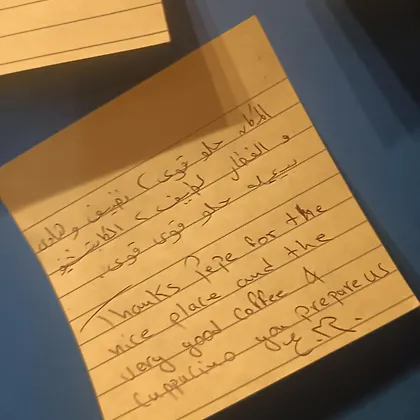 المكان حلو قوى، نضيف و هادى
و الفطار نضيف، الكابتشينو
بتاعه حلو قوى قوى.
Thanks Pepe for the
nice place and the
very good coffee &
Cuppucino you prepare us
E.R.